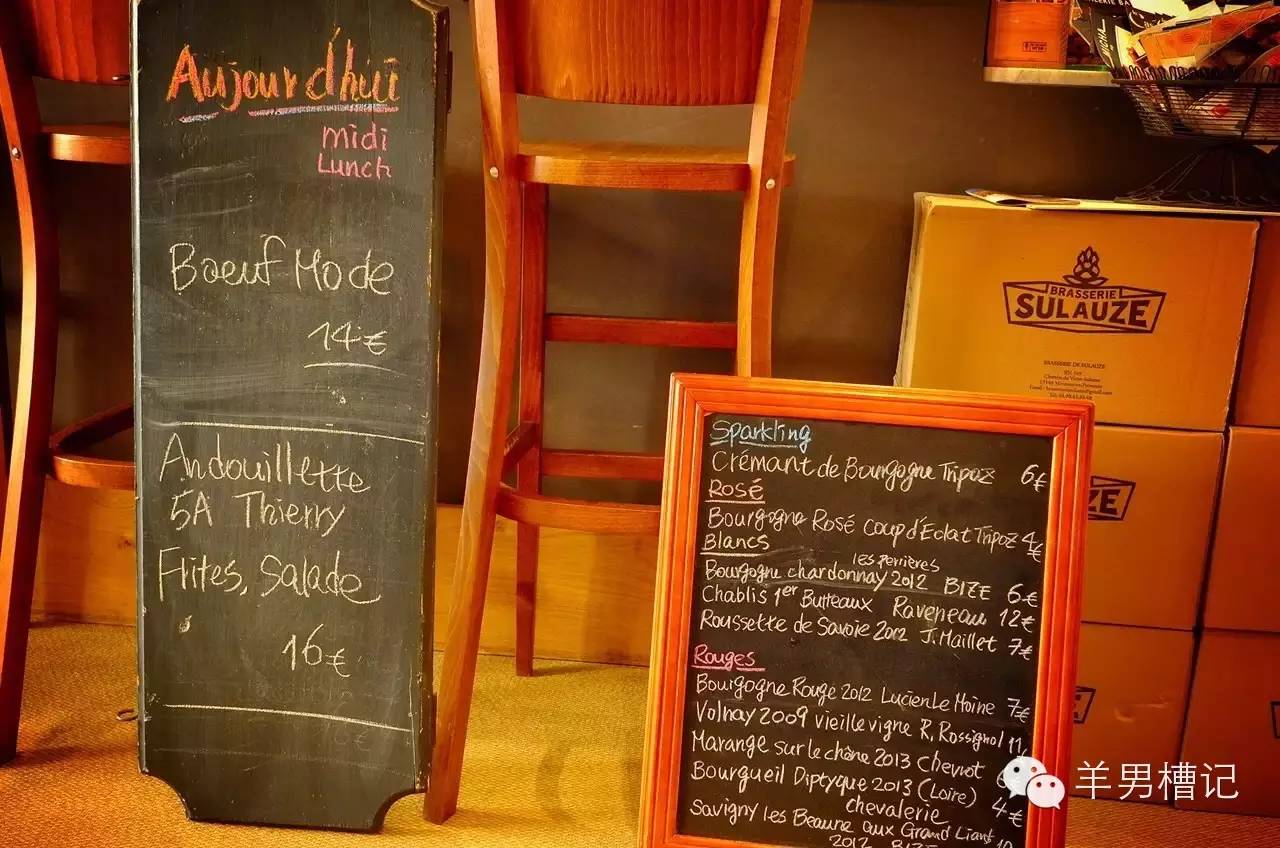 Aujourd'hui
midi
Lunch
Boeuf Mode
14€
Andouillette
5A Thierry
Frites, Salade
16€
BRASSERIE
SULAUZE
BRASSERIE DE SULAUZE
Sparkling
Crémant de Bourgogne Tripoz 6€
Rosé
Bourgogne Rosé Coup d'Eclat Tripoz 4€
Blancs
les perrières
Bourgogne chardonnay 2012 BIZE 6€
Chablis 1er Butteaux Raveneau 12€
Roussette de Savoie 2012 J. Maillet 7€
Rouges
Bourgogne Rouge 2012 Lucien Le Moine 7€
Volnay 2009 vieille vigne R. Rossignol 11
Marange sur le chêne 2013 Chevrot
Bourgueil Diptyque 2013 (Loire) 4€
chevalerie
Savigny les Beaune aux Grand Liards
2012 BIZE
羊男槽记